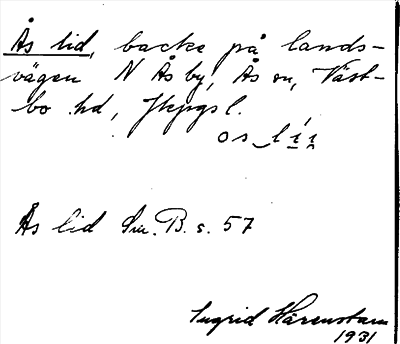 Ås lid, backe på lands-
vägen N Ås by, Ås sn, Väst-
bo hd, Jkpgs l.
Ås lid Sm. B. s. 57
Ingrid Härenstam
1931